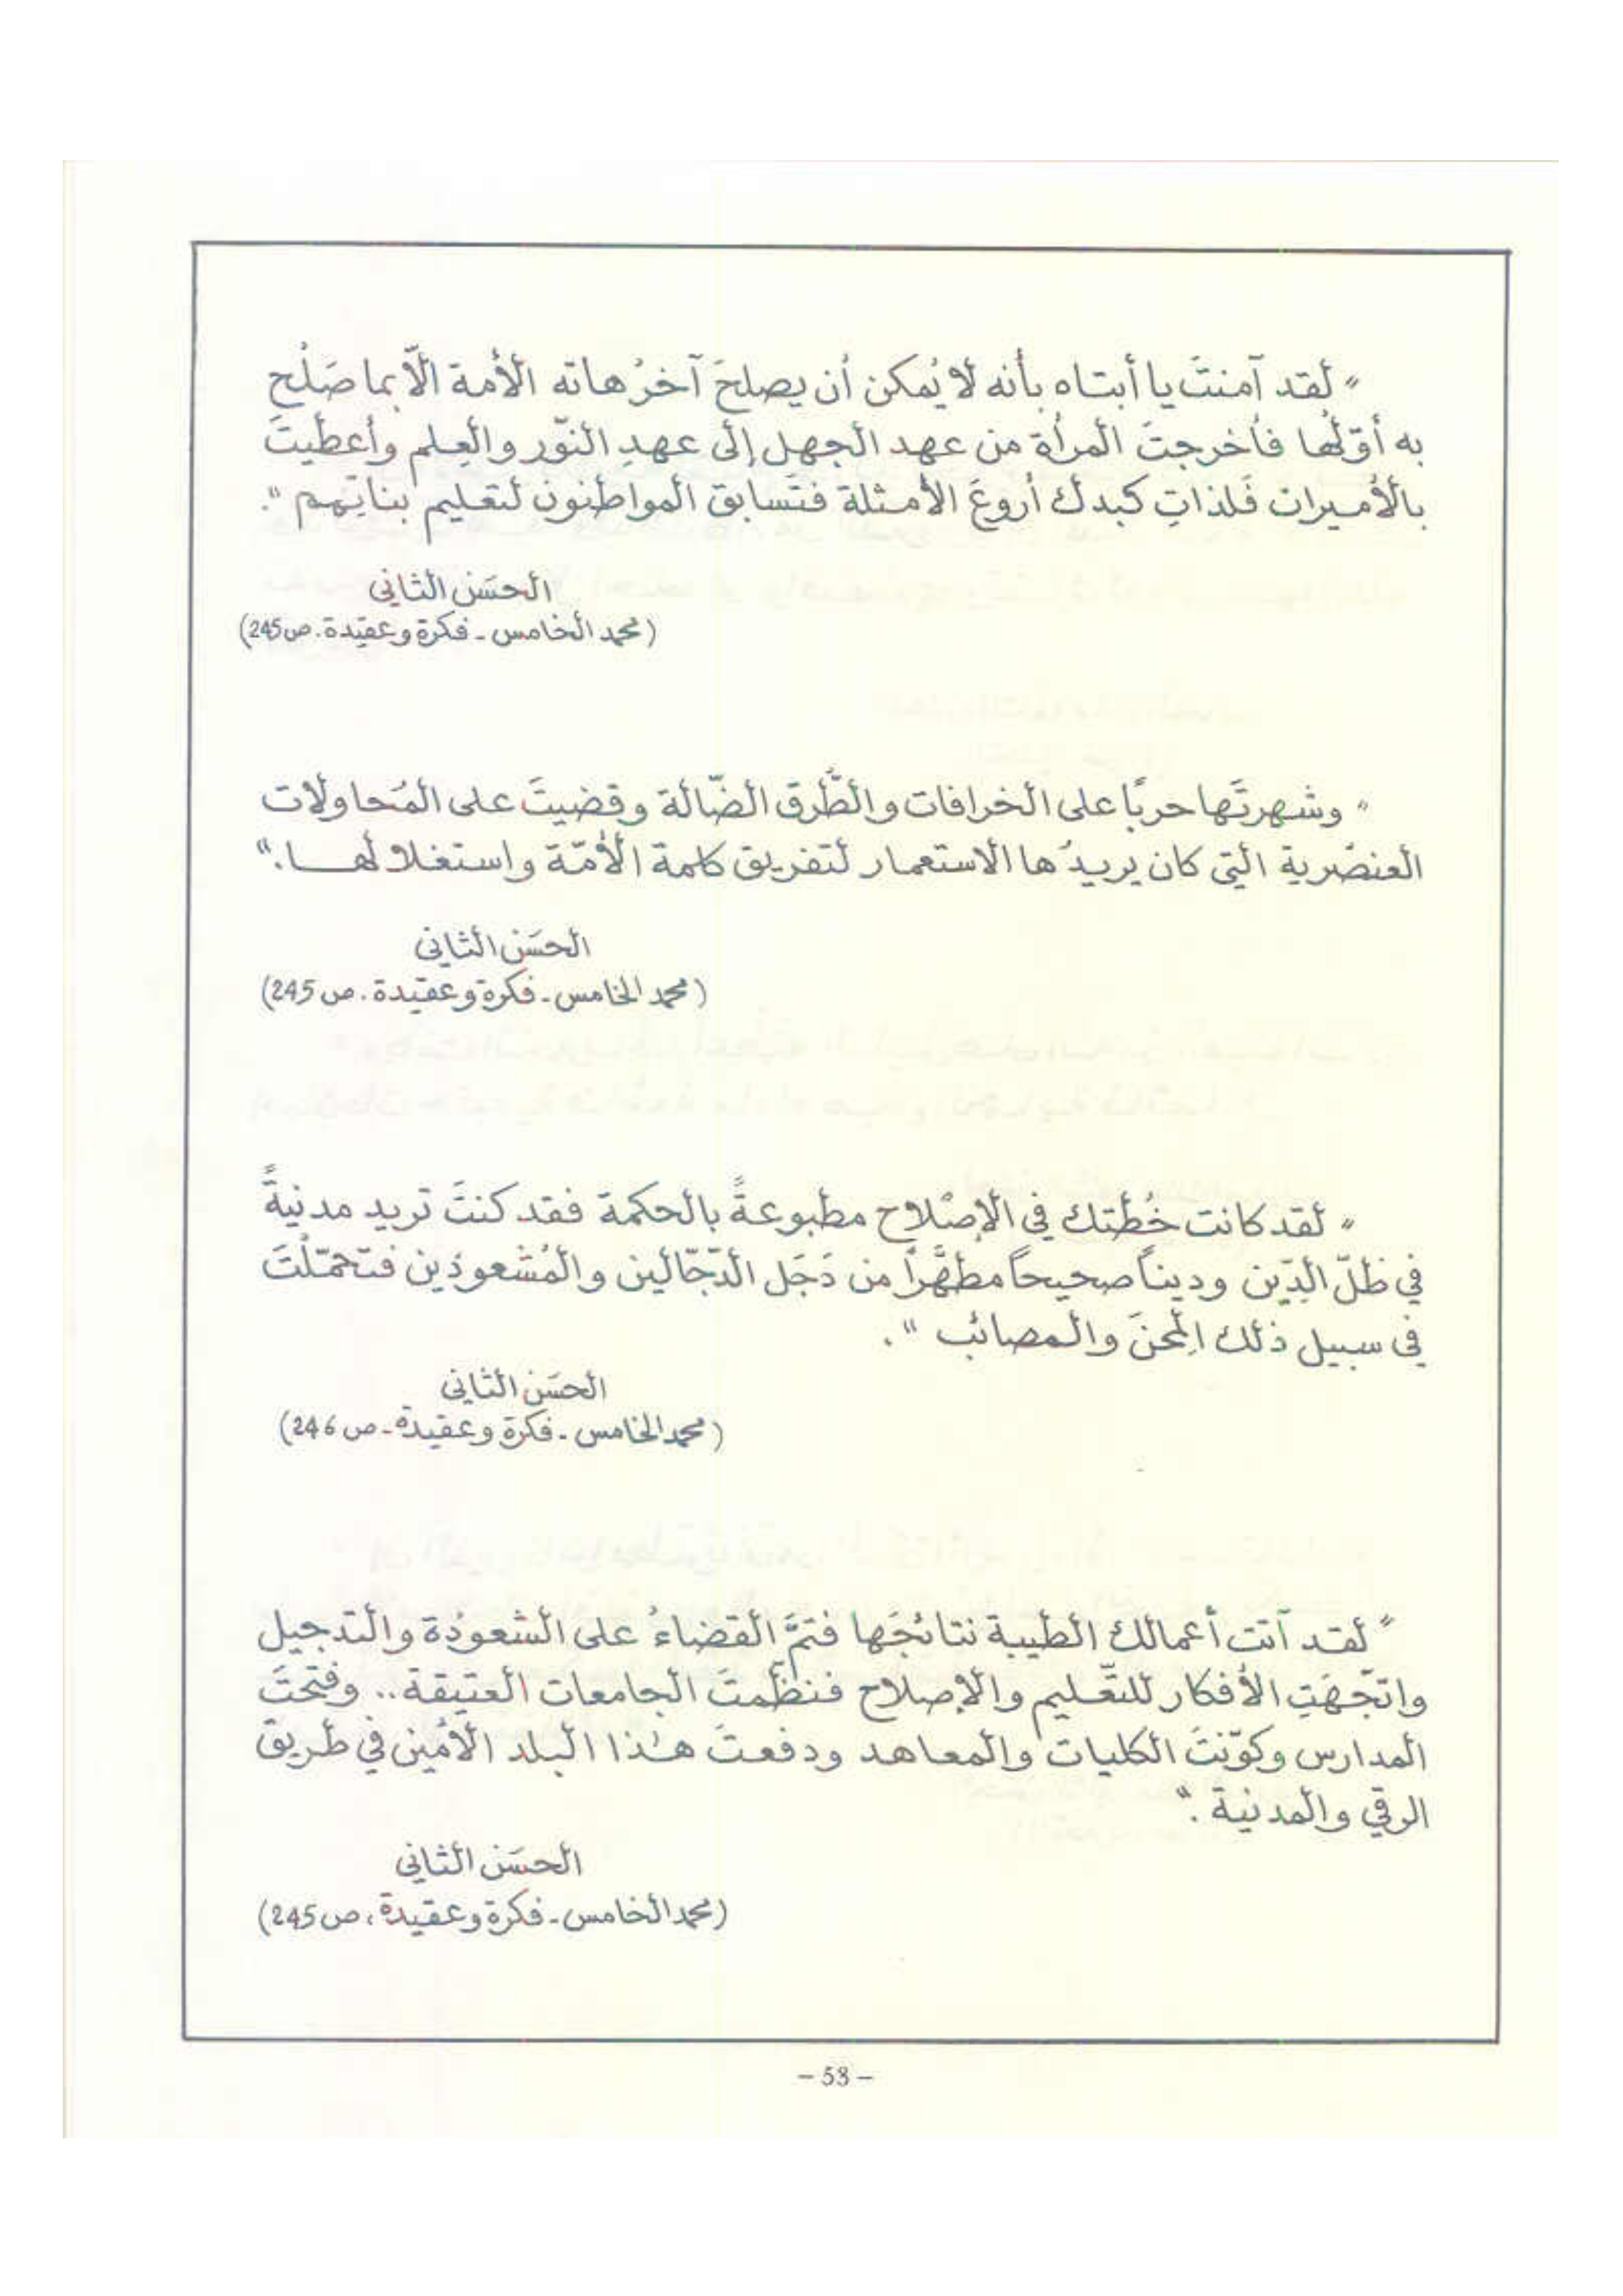 " لقد آمنتَ يا أبتاه بأنه لا يُمكن أن يصلحَ آخرُ هاته الأمة إلّا بما صَلُح
به أوّلُها فأخرجتَ المرأة من عهد الجهل إلى عهدِ النّور والعِلم وأعطيتَ
بالأميرات فَلذاتِ كبدك أروعَ الأمثلة فتَسابق المواطنون لتعليم بناتِهم ".
الحسَن الثاني
(محمد الخامس - فكرة وعقيدة. ص 245)
" وشهرتَها حربًا على الخرافات والطُّرق الضّالة وقضيتَ على المُحاولات
العنصرية التي كان يريدُها الاستعمار لتفريق كلمة الأمّة واستغلالها."
الحسَن الثاني
(محمد الخامس - فكرة وعقيدة. ص 245)
" لقد كانت خُطتك في الإصلاح مطبوعةً بالحكمة فقد كنتَ تريد مدنيةً
في ظلّ الدِّين وديناً صحيحاً مطهَّراً من دَجَل الدّجّالين والمُشعوذين فتحمّلتَ
في سبيل ذلك المِحنَ والمصائب ".
الحسَن الثاني
(محمد الخامس - فكرة وعقيدة - ص 246)
" لقد آتت أعمالك الطيبة نتائجَها فتمَّ القضاءُ على الشعوذة والتدجيل
واتّجهَتِ الأفكار للتّعليم والإصلاح فنظّمتَ الجامعات العتيقة.. وفتحتَ
المدارس وكوّنتَ الكليات والمعاهد ودفعتَ هذا البلد الأمين في طريق
الرقي والمدنية ."
الحسَن الثاني
(محمد الخامس - فكرة وعقيدة، ص 245)
- 53 -